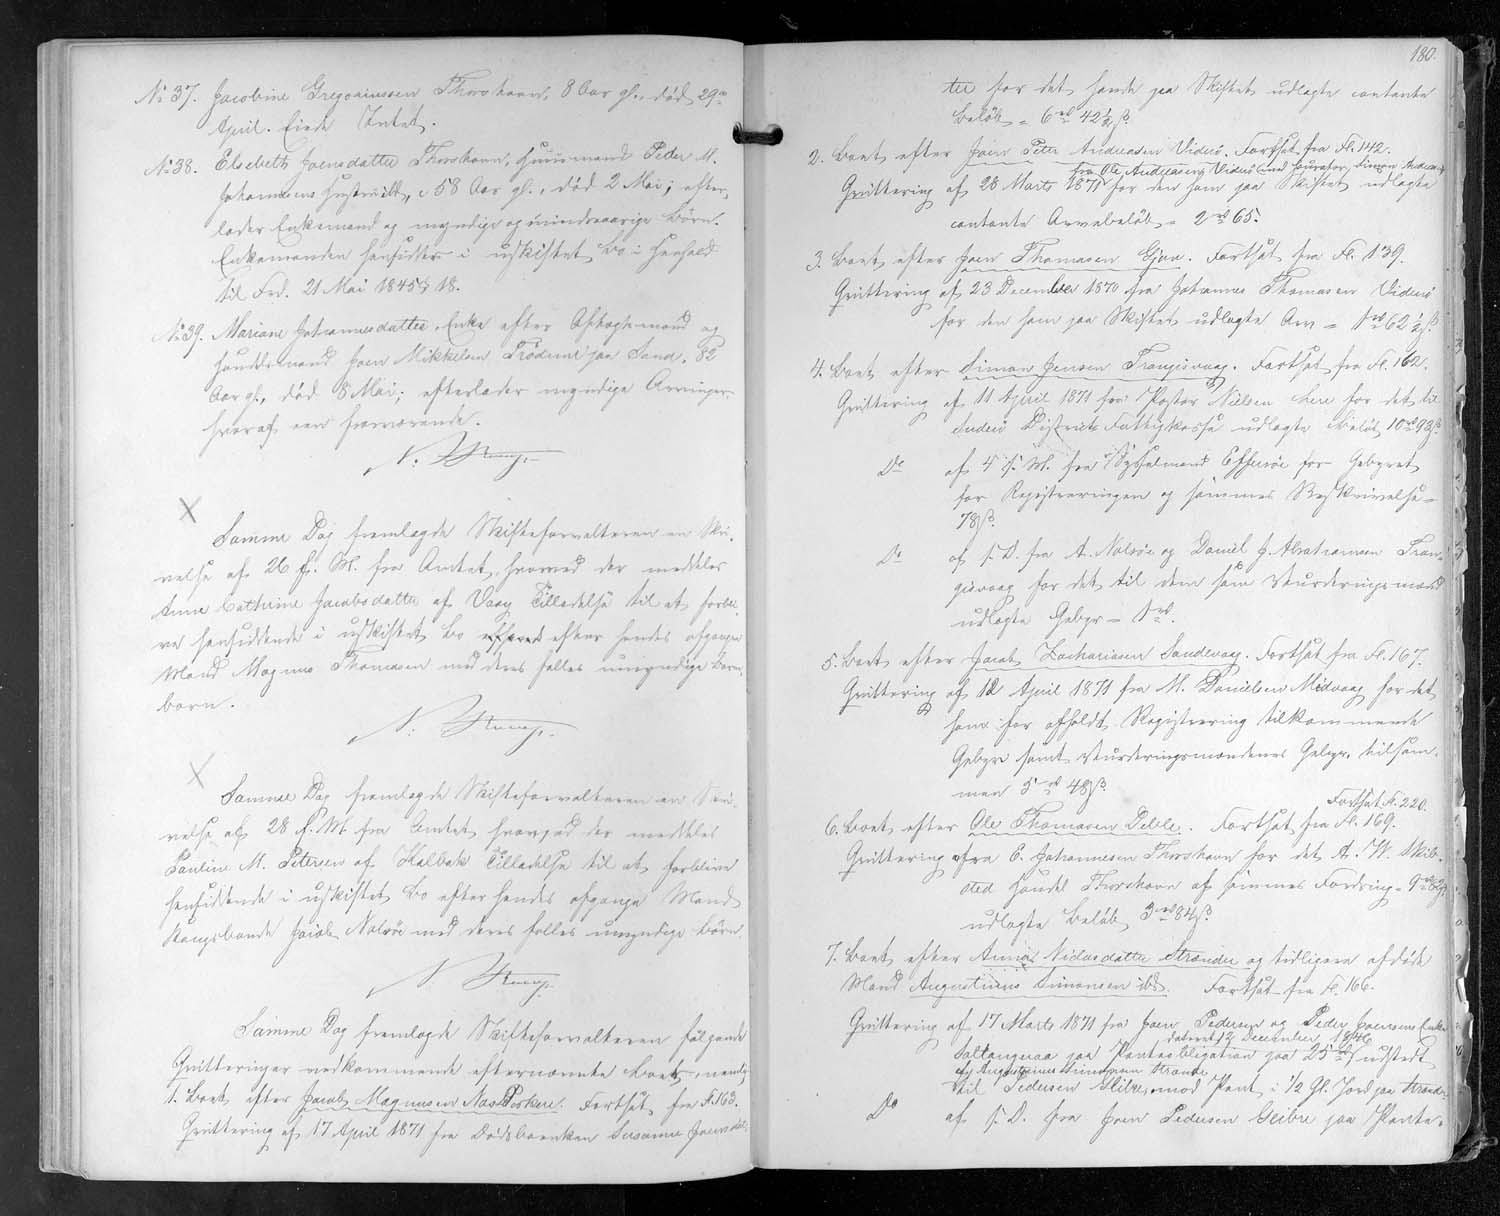 No 37. Jacobine Gregoriussen Thorshavn, 8 Aar gl., død 29de
April. Eiede Intet.
No 38. Elsebeth Joensdatter Thorshavn, Huusmand Peder M.
Johannesens Hustru ibd., 58 Aar gl., død 2 Mai; efter-
lader Enkemand og myndige og mindreaarige Børn.
Enkemanden hensidder i uskiftet Bo i Henhold
til Frd. 21 Mai 1845 § 18.
No 39. Mariane Johannesdatter, Enke efter Aftægtsmand og
Huusmand Joen Mikkelsen Trødum paa Sand, 82
Aar gl., død 8 Mai; efterlader myndige Arvinger
hvoraf een fraværende.
N:
Samme Dag fremlagde Skifteforvalteren en Skri-
velse af 26 f. M. fra Amtet, hvorved der meddeles
Anne Cathrine Jacobsdatter af Vaag Tilladelse til at forbli-
ve hensiddende i uskiftet Bo efter hendes afgangne
Mand Magnus Thomasen med deres fælles umyndige Børn
børn.
N:
Samme Dag fremlagde Skifteforvalteren en Skri-
velse af 28 f. M. fra Amtet hvorved der meddeles
Pauline M. Petersen af Kalbak Tilladelse til at forblive
hensiddende i uskiftet Bo efter hendes afgangne Mand
Kongsbonde Jacob Nolsøe med deres fælles umyndige Børn.
N.
Samme Dag fremlagde Skifteforvalteren følgende
Qvitteringer vedkommende efternævnte Boer, nemlig
1. Boet efter Jacob Magnussen Nas Porkere. Fortsat fra Fl. 163.
Qvittering af 17 April 1871 fra Dødsboenken Susanne Joensdat-
180.
ter for det hende paa Skiftet udlagte contante
Beløb = 6 rd 42½ ß.
2. Boet efter Joen Peter Andreasen Viderø. Fortsat fra Fl. 142.
fra Ole Andreasen Viderø med Curator, Simon Andreas
Qvittering af 28 Marts 1871 for den ham paa Skiftet udlagte
contante Arvebeløb = 2 rd 65.
3. Boet efter Joen Thomasen Gjov. Fortsat fra Fl. 139.
Qvittering af 23 December 1870 fra Johannes Thomasen Viderø
for den ham paa Skiftet udlagte Arv = 1 rd 62½ ß.
4. Boet efter Simon Jensen Trangisvaag. Fortsat fra Fl. 162.
Qvittering af 11 April 1871 fra Pastor Nielsen here for det til
Suderø Districts Fattigkasse udlagte Beløb 10 rd 93 ß.
Do af 4 s. M. fra Sysselmand Effersøe for Gebyret
for Registreringen og sammes Beskrivelse =
78 ß.
Do af s. D. fra A. Nolsøe og Daniel J. Abrahamsen Tran-
gisvaag for det til dem som Vurderingsmænd
udlagte Gebyr = 1 rd.
5. Boet efter Jacob Zachariasen Sandevaag. Fortsat fra Fl. 167.
Qvittering af 12 April 1871 fra M. Danielsen Midvaag for det
ham for afholdt Registrering tilkommende
Gebyr samt Vurderingsmændenes Gebyr, tilsam-
men 5 rd 48 ß.
Fortsat Fl. 220.
6. Boet efter Ole Thomasen Deble. Fortsat fra Fl. 169.
Qvittering fra C. Johannesen Thorshavn for det A. W. Skib-
sted Handel Thorshavn af sammes Fordring = 9 rd
udlagte Beløb 3 rd 84 ß.
7. Boet efter Anna Nidasdatter Strænder og tidligere afdøde
Mand Augustinus Simonsen ibd. Fortsat fra Fl. 166.
Qvittering af 17 Marts 1871 fra Joen Pedersen og Peder Joensens Enke
dateret 12 December 1846
Saltangeraa paa Panteobligation paa 25 rd udstedt
af Augustinus Simonsen Strænde
til Pedersen Glibre, mod Pant i 1/2 Gl. Jord paa Strænder.
Do af s. D. fra Joen Pedersen Glibre paa Pante-